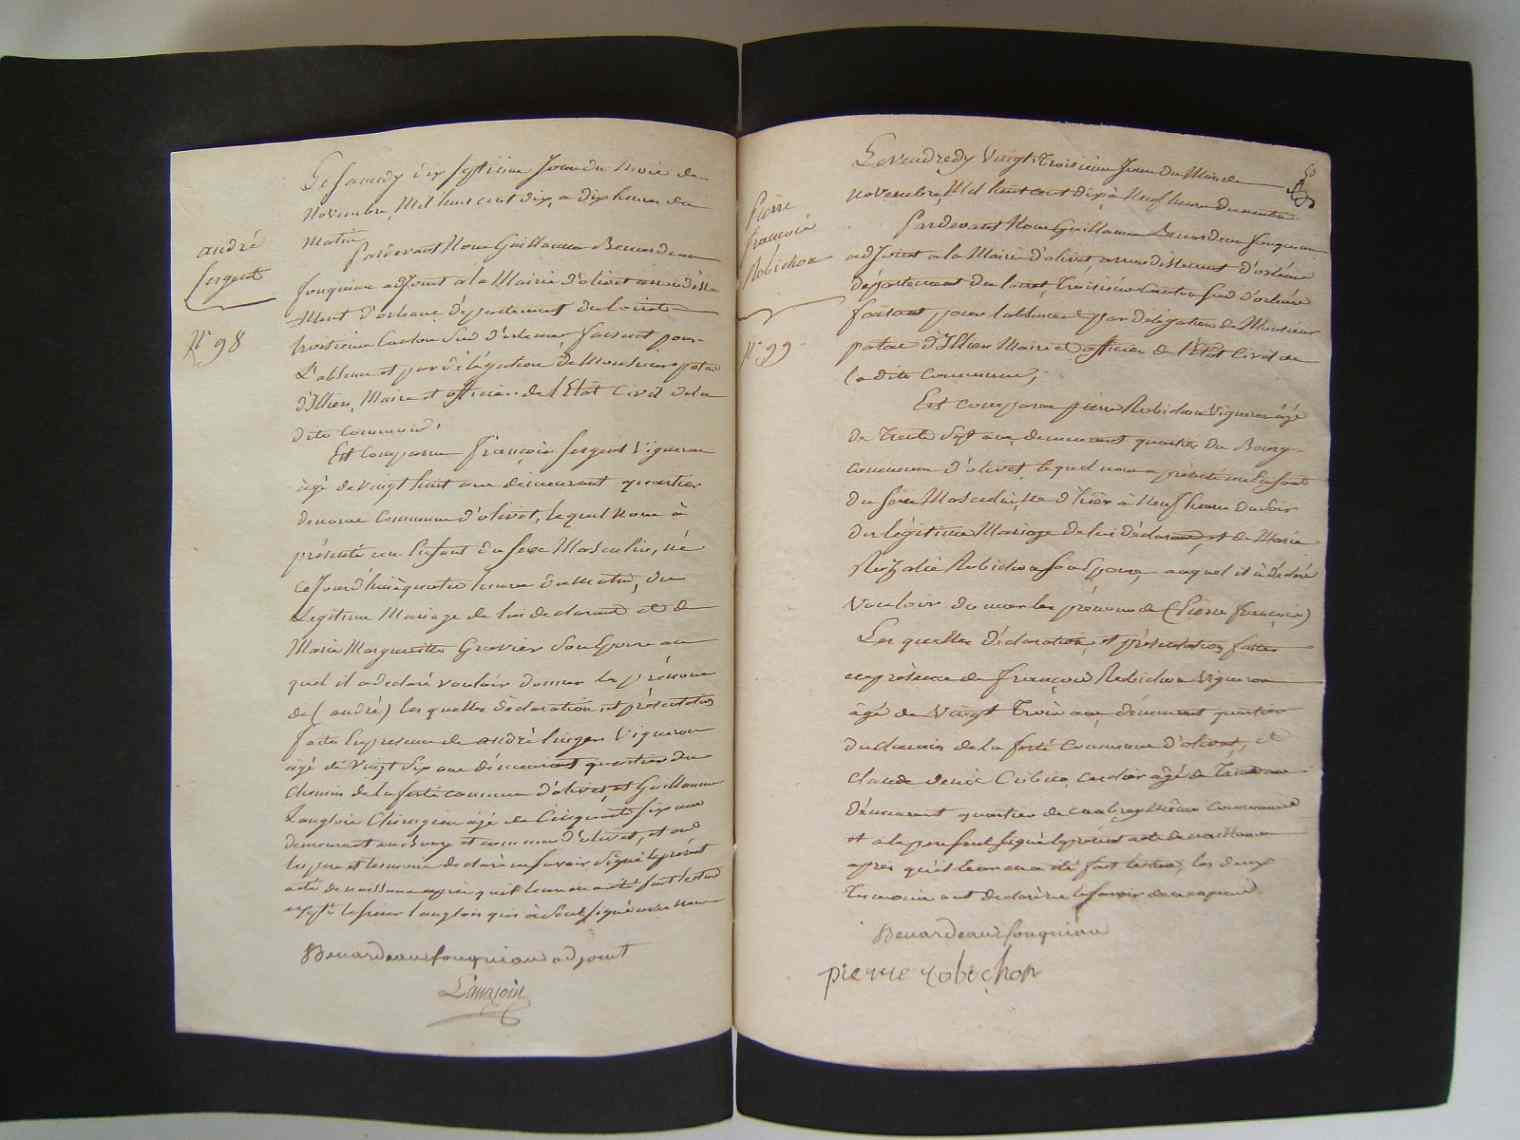 andré
Sergent
N° 98
Le Samedy dix Septieme Jour du Mois de
Novembre, Mil huit cent dix, a dix heures du
matin,
Pardevant Nous Guillaume Benardeau
fouqueau adjoint a la Mairie d'olivet arrondisse
ment d'orleans, département du loiret
troisieme Canton Sud d'orleans faisant pour
L'absence et par délégation de Monsieur patas
d'Illiers, Maire et officier de l'Etat Civil de la
dite Commune,
Est Comparu François Sergent Vigneron
agé de vingt huit ans demeurant quartier
Commune d'olivet, lequel Nous à
présenté un Enfant du Sexe Masculin, né
ce Jourd'hui à quatre heures du matin, du
Legitime Mariage de lui declarant et de
Marie Marguerite Gravier Son Epouse au
quel il a declaré vouloir donner le prénom
de (andré) les quelles déclaration et présentation
faites En presence de andré Vigneron
agé de Vingt Six ans demeurant quartier du
chemin de la ferté commune d'olivet, et Guillaume
Langlois Chirurgien agé de Cinquante Six ans
demeurant au Bourg et commune d'olivet, et ont
les pere et temoin declaré ne savoir Signé le présent
acte de naissance après qu'il leur en a été fait lecture
excepté le sieur Langlois qui à Seul Signé avec Nous
Benardeau fouqueau adjoint
Langlois
Pierre
françois
Robichon
N° 99
Le vendredy Vingt Troisieme Jour du Mois de
Novembre, Mil huit cent dix à Neuf heures du matin
Pardevant Nous Guillaume Benardeau fouqueau
adjoint a la Mairie d'olivet arrondissement d'orléans
département du loiret, Troisième Canton Sud d'orléans
faisant pour l'absence et par délégation de Monsieur
patas d'Illiers Maire et officier de l'Etat Civil de
la dite Commune,
Est comparu pierre Robichon Vigneron âgé
de Trente Sept ans, demeurant quartier du Bourg
commune d'olivet, lequel nous a présenté un Enfant
du sexe Masculin, Né d'hier à Neuf heures du Soir
du légitime Mariage de lui déclarant, et de Marie
Robichon Son Epouse, auquel il à déclaré
Vouloir donner les prénoms de (Pierre françois)
Les quelles déclaration et présentation faites
en présence de françois Robichon Vigneron
âgé de Vingt Trois ans, demeurant quartier
du chemin de la ferté Commune d'olivet, et
claude denis âgé de Trente ans
demeurant quartier de Même Commune
et a le pere seul signé le présent acte de naissance
après qu'il leur en a été fait lecture, les deux
Temoins ont declaré ne le savoir de ce requis
Benardeau fouqueau
pierre robichon